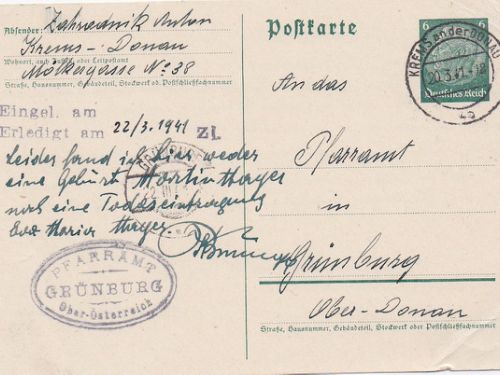 Absender: Zahradnik Anton
Krems-Donau
Wohnort, auch Zustell- oder Leitpostamt
Molkergasse No 38
Straße, Hausnummer, Gebäudeteil, Stockwerk od. Postschließfachnummer
Postkarte
6 6
Deutsches Reich
KREMS an der DONAU
20.3.41
An das
Pfarramt
in
Grünburg
Ober-Donau
Straße, Hausnummer, Gebäudeteil, Stockwerk oder Postschließfachnummer
Eingel. am
Erledigt am 22/3.1941 Zl.
Leider fand ich hier weder
eine Geburt Martin Hayer
noch eine Todeseintragung
der Maria Hayer.
PFARRAMT
GRÜNBURG
Ober-Österreich